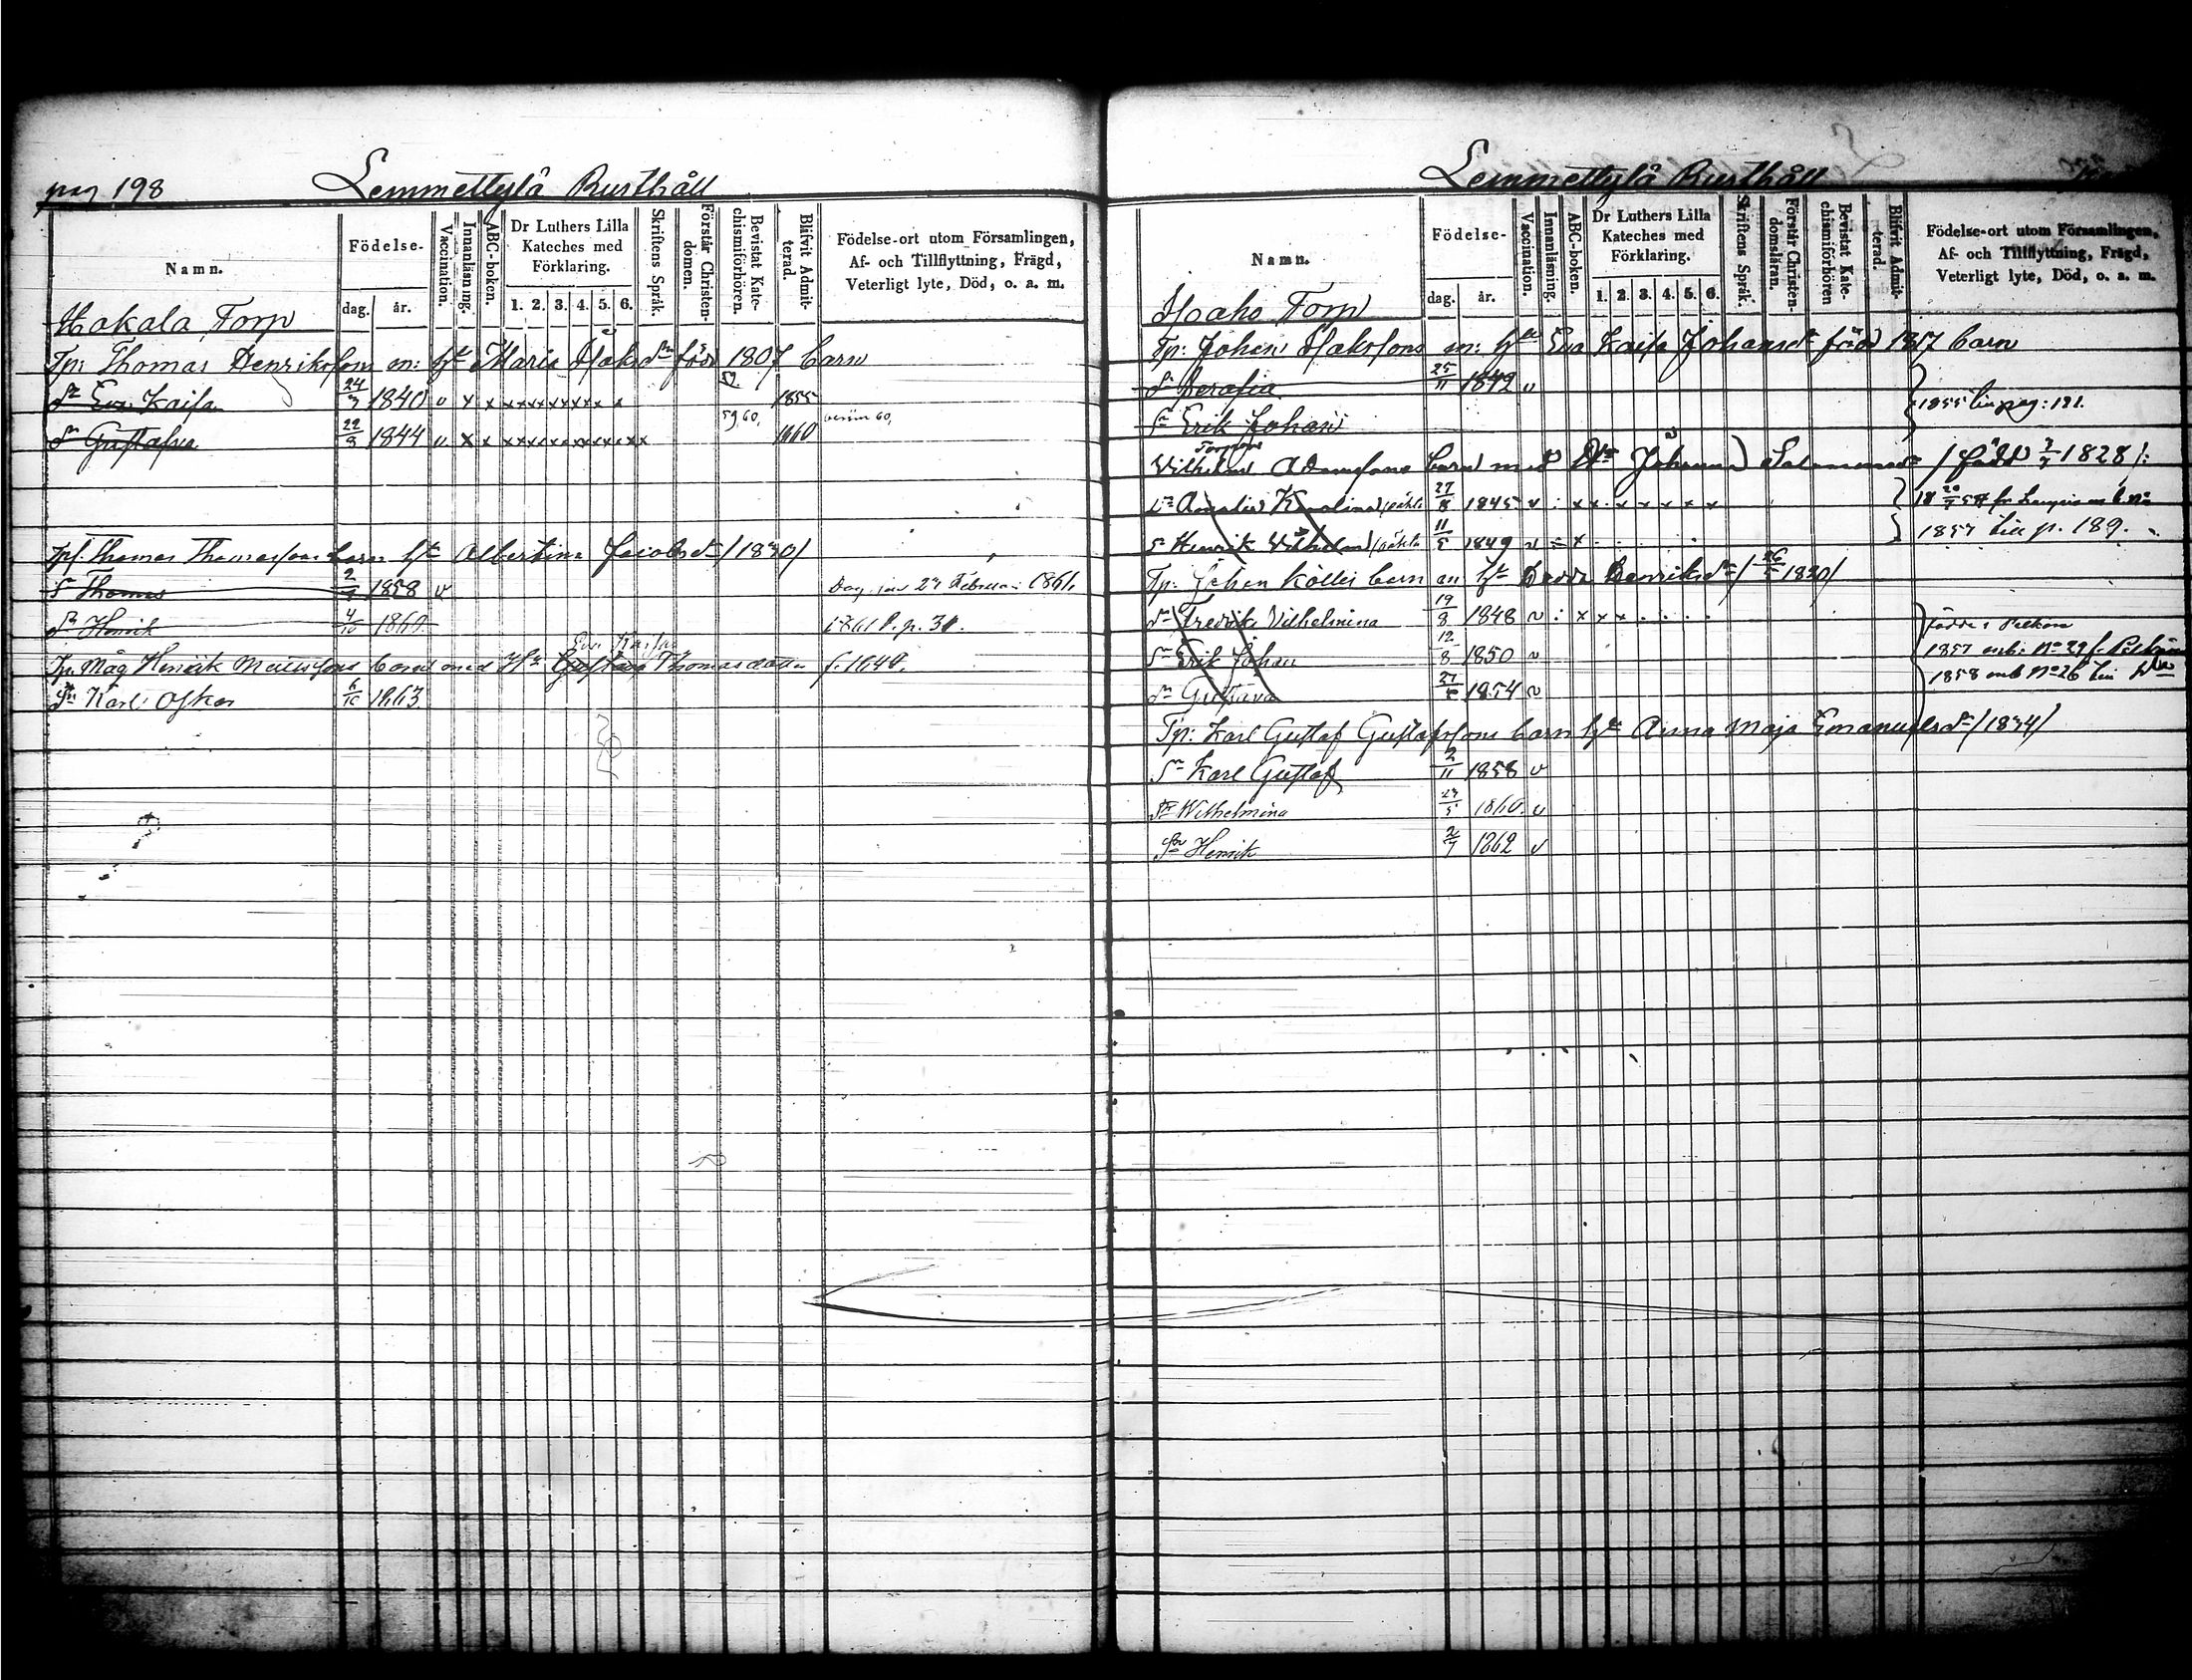 pag 198 Lemmettylä Rusthåll
Namn. Födelse- dag. år. Vaccination. Innanläsning. ABC-boken. Dr Luthers Lilla Kateches med Förklaring. 1. 2. 3. 4. 5. 6. Skriftens Språk. Förstår Christendomen. Bevistat Katechismiförhören. Blifvit Admitterad. Födelse-ort utom Församlingen, Af- och Tillflyttning, Frägd, Veterligt lyte, Död, o. a. m.
Hakala Torp
Tp: Thomas Henriksson m: Hu Maria Isaksdr född 1807 barn
dr Eva Kaisa 24/3 1840 v x x x x x x x x x x 1855
dr Gustafva 22/8 1844 v x x x x x x x x x x 59,60, 1860 60,
Thomas Thomassons barn Hu Albertina Jacobsdr /1830/
Sn Thomas 2/ 1858 v 27 Februari 1861.
Sn Henrik 4/10 1860. 1861 p. 31.
Eva Kaisa
Tp. Måg Henrik Mattssons barn med Hu Gustava Thomasdotter f. 1840.
Sn Karl Oskar 6/10 1863.
Lemmettylä Rusthåll
Namn. Födelse- dag. år. Vaccination. Innanläsning. ABC-boken. Dr Luthers Lilla Kateches med Förklaring. 1. 2. 3. 4. 5. 6. Skriftens Språk. Förstår Christendomsläran. Bevistat Katechismiförhören Blifvit Admitterad. Födelse-ort utom Församlingen, Af- och Tillflyttning, Frägd, Veterligt lyte, Död, o. a. m.
Haaho Torp
Tp: Johan Isaksons m: Hu Eva Kaisa Johansdr född 1817 barn
dr Serafia 25/11 1842 v
Sn Erik Johan 1855 pag: 181.
Wilhelm Adamssons barn med Johanna Salomonsdr /född 3/7 1828/:
dr Amalia Karolina 27/8 1845 v : x x . x x x x x
Sn Henrik Vilhelm 11/5 1849 v x 1857 p. 189.
Tp: Johan Kölli barn m Hu Hedda Henriksdr /26/5 1830/
dr Fredrika Vilhelmina 19/8 1848 v : x x x . . . .
Sn Erik Johan 12/8 1850 v 1857 No 29
dr Gustava 27/ 1854 v 1858 No 26
Tp: Karl Gustaf Gustafssons barn Hu Anna Maja Emanuelsdr /1834/
Sn Karl Gustaf 2/11 1858 v
dr Wilhelmina 23/5 1860. v
Sn Henrik 2/7 1862 v